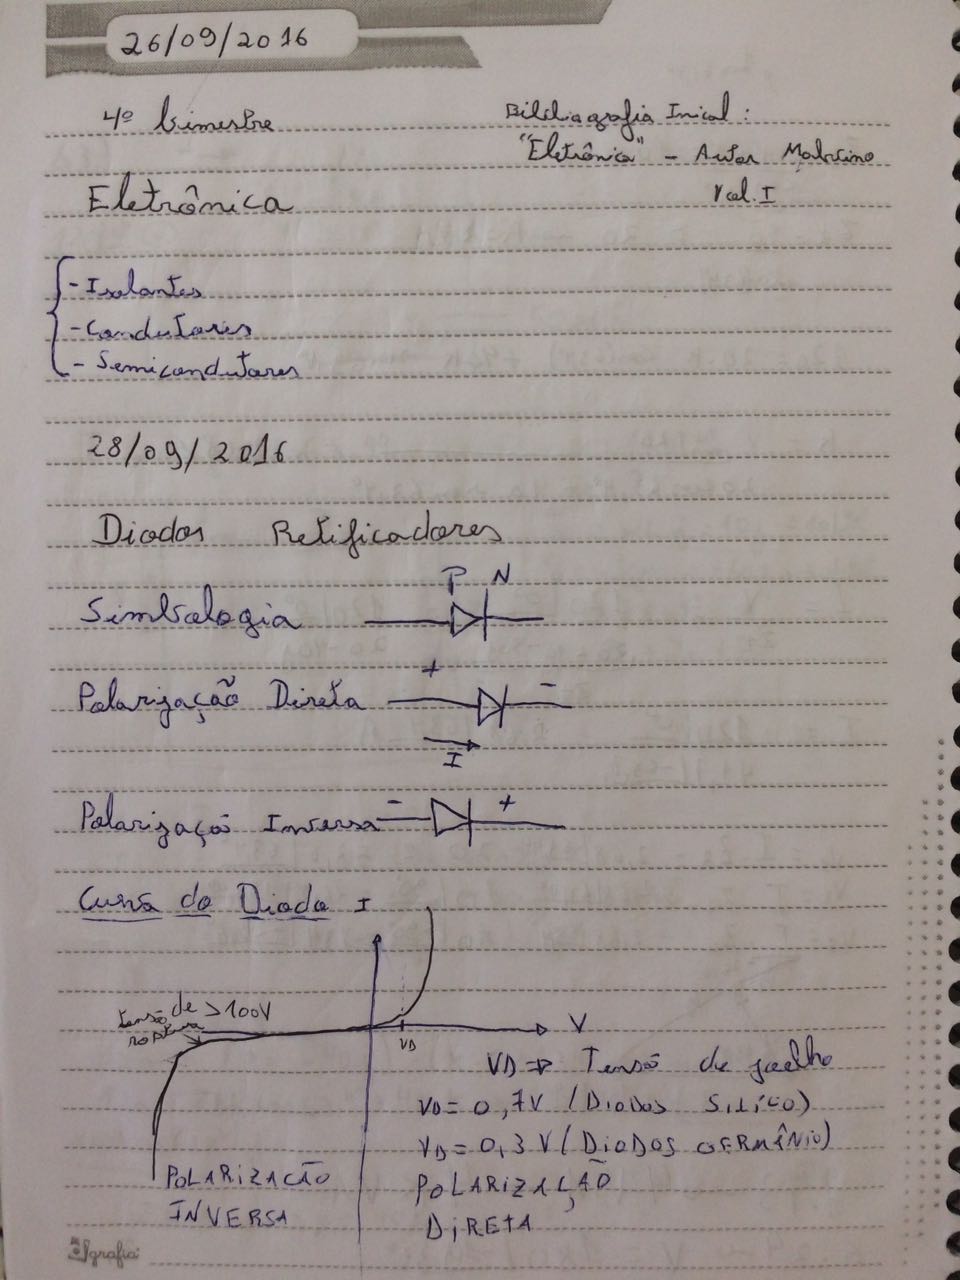 26/09/2016
4º bimestre
Bibliografia Inicial:
"Eletrônica" - Autor Malvino
Vol. I
Eletrônica
- Isolantes
- Condutores
- Semicondutores
28/09/2016
Diodos Retificadores
P N
Simbologia
+ -
Polarização Direta
I
- +
Polarização Inversa
Curva do Diodo I
tensão de >100V
V
VD
VD ⇒ Tensão de joelho
VD = 0,7V (DIODOS SILÍCO)
VD = 0,3V (DIODOS GERMÂNIO)
POLARIZAÇÃO
INVERSA
POLARIZAÇÃO
DIRETA
grafia